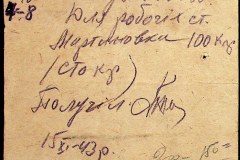 4-8
Для робочіх ст.
Мартиновки 100 кр
(сто кр)
Получил
15/XI-43 р.